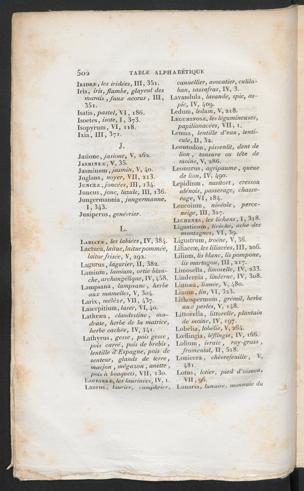 502
TABLE ALPHABÉTIQUE
IRIDEÆ, les iridées, III, 351.
Iris, iris, flambe, glayeul des
marais, faux acorus, III,
351.
Isatis, pastel, VI, 186.
Isoetes, isote, I, 373.
Isopyrum, VI, 118.
Ixia, III, 371.
J.
Jasione, jasione, V, 262.
JASMINEÆ, V, 35.
Jasminum, jasmin, V, 40.
Juglans, noyer, VII, 213.
JUNCEÆ, joncées, III, 134.
Juncus, jonc, III, 136.
Jungermannia, jungermanne,
I, 343.
Juniperus, genévrier.
L.
LABIATÆ, les labiées, IV, 384.
Lactuca, laitue, laitue pommée,
laitue frisée, V, 292.
Lagurus, lagurier, II, 382.
Lamium, lamium, ortie blan-
che, archangélique, IV, 458.
Lampsana, lampsane, herbe
aux mamelles, V, 304.
Larix, mélèze, VII, 437.
Laserpitium, laser, VI, 40.
Lathræa, clandestine, ma-
drate, herbe de la matrice,
herbe cachée, IV, 141.
Lathyrus, gesse, pois gesse,
pois carré, pois de brebis,
lentille d'Espagne, pois de
senteur, glands de terre,
macjon, mégazon, anette,
pois à bouquets, VII, 130.
LAURINEÆ, les laurinées, IV, 1.
Laurus, laurier, camphrier,
canuellier, avocatier, culila-
ban, sassafras, IV, 3.
Lavandula, lavande, spic, as-
pic, IV, 409.
Ledum, ledum, V, 218.
LEGUMINOSÆ, les légumineuses,
papilionacées, VII, 1.
Lemna, lentille d'eau, lenti-
cule, II, 32.
Leontodon, pissenlit, dent de
lion, tonsure ou tête de
moine, V, 286.
Leonurus, agripaume, queue
de lion, IV, 490.
Lepidium, nasitort, cresson
alénois, passerage, chasse-
rage, VI, 184.
Leucoium, nivéole, perce-
neige, III, 307.
LICHENES, les lichens, I, 318.
Ligusticum, livèche, ache des
montagnes, VI, 39.
Ligustrum, troène, V, 36.
Liliaceæ, les liliacées, III, 206.
Lilium, lis blanc, lis pompone,
lis martagon, III, 217.
Limosella, limoselle, IV, 233.
Lindernia, linderne, IV, 308.
Linnæa, linnée, V, 480.
Linum, lin, VI, 313.
Lithospermum, grémil, herbe
aux perles, V, 148.
Littorella, littorelle, plantain
de moine, IV, 107.
Lobelia, lobélie, V, 264.
Lœflingia, léflinge, IV, 166.
Lolium, ivraie, ray-grass,
fromental, II, 518.
Lonicera, chèvrefeuille, V,
481.
Lotus, lotier, pied d'oiseau,
VII, 96.
Lunaria, lunaire, monnaie du